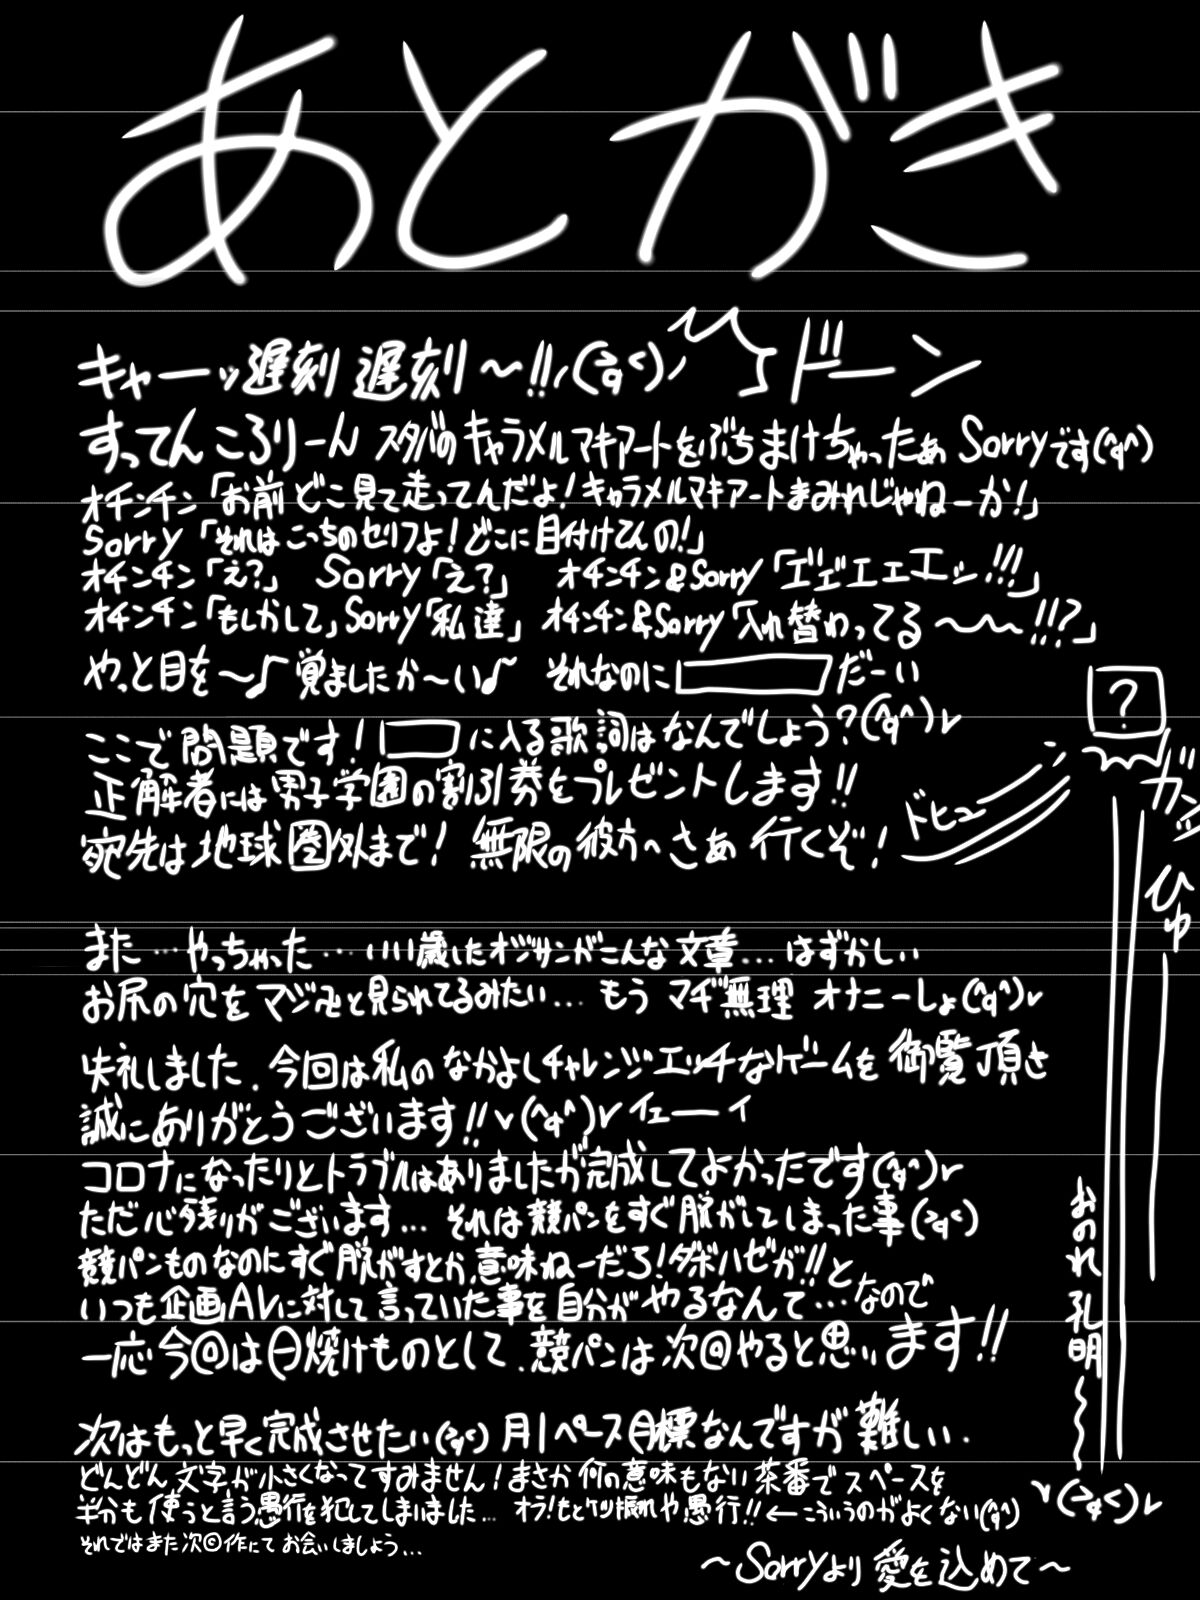 あとがき
キャーッ遅刻 遅刻〜!!
ドーン
すってんころりーん スタバのキャラメルマキアートをぶちまけちゃったぁ Sorryです
オチンチン「お前どこ見て走ってんだよ!キャラメルマキアートまみれじゃねーか!」
Sorry「それはこっちのセリフよ!どこに目付けてんの!」
オチンチン「え?」 Sorry「え?」 オチンチン&Sorry「エ゛ェェェエッ!!!」
オチンチン「もしかして」Sorry「私達」 オチンチン&Sorry「入れ替わってる〜〜!!?」
やっと目を〜♪覚ましたか〜い♪ それなのに だーい
ここで問題です! に入る歌詞はなんでしょう?
正解者には男子学園の割引券をプレゼントします!!
宛先は地球圏外まで! 無限の彼方へさぁ行くぞ!
ドヒュー
?
ガンッ
ひゅ
また…やっちゃった…いい歳したオジサンがこんな文章…はずかしい
お尻の穴をマジマジと見られてるみたい… もう マヂ無理 オナニーしょ(^q^)v
失礼しました.今回は私のなかよしチャレンジエッチなゲームを御覧頂き
誠にありがとうございます!!v(^q^)vイェーイ
コロナになったりとトラブルはありましたが完成してよかったです(^q^)v
ただ心残りがございます… それは競パンをすぐ脱がしてしまった事
競パンものなのにすぐ脱がすとか意味ねーだろ!ダボハゼが!!と
いつも企画AVに対して言っていた事を自分がやるなんて…なので
一応今回は日焼けものとして.競パンは次回やると思います!!
次はもっと早く完成させたい 月1ペース目標なんですが難しい.
どんどん文字が小さくなってすみません!まさか何の意味もない茶番でスペースを
半分も使うと言う愚行を犯してしまいました… オラ!もとケツ振れや愚行!!←こういうのがよくない(^q^)
それではまた次回作にてお会いしましょう…
おのれ孔明〜
〜Sorryより愛を込めて〜